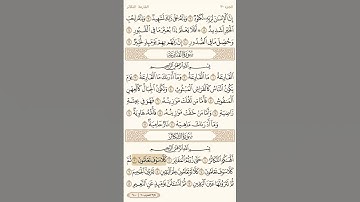 إِنَّ ٱلْإِنسَٰنَ لِرَبِّهِۦ لَكَنُودٌ ۝ وَإِنَّهُۥ عَلَىٰ ذَٰلِكَ لَشَهِيدٌ ۝ وَإِنَّهُۥ لِحُبِّ
ٱلْخَيْرِ لَشَدِيدٌ ۝ أَفَلَا يَعْلَمُ إِذَا بُعْثِرَ مَا فِى ٱلْقُبُورِ ۝
وَحُصِّلَ مَا فِى ٱلصُّدُورِ ۝ إِنَّ رَبَّهُم بِهِمْ يَوْمَئِذٍ لَّخَبِيرٌۢ ۝
سُورَةُ القَارِعَةِ
بِسْمِ ٱللَّهِ ٱلرَّحْمَٰنِ ٱلرَّحِيمِ
ٱلْقَارِعَةُ ۝ مَا ٱلْقَارِعَةُ ۝ وَمَآ أَدْرَىٰكَ مَا ٱلْقَارِعَةُ ۝ يَوْمَ
يَكُونُ ٱلنَّاسُ كَٱلْفَرَاشِ ٱلْمَبْثُوثِ ۝ وَتَكُونُ ٱلْجِبَالُ كَٱلْعِهْنِ
ٱلْمَنفُوشِ ۝ فَأَمَّا مَن ثَقُلَتْ مَوَٰزِينُهُۥ ۝ فَهُوَ فِى عِيشَةٍ
رَّاضِيَةٍ ۝ وَأَمَّا مَنْ خَفَّتْ مَوَٰزِينُهُۥ ۝ فَأُمُّهُۥ هَاوِيَةٌ ۝
وَمَآ أَدْرَىٰكَ مَا هِيَهْ ۝ نَارٌ حَامِيَةٌۢ ۝
سُورَةُ التَّكَاثُرِ
بِسْمِ ٱللَّهِ ٱلرَّحْمَٰنِ ٱلرَّحِيمِ
أَلْهَىٰكُمُ ٱلتَّكَاثُرُ ۝ حَتَّىٰ زُرْتُمُ ٱلْمَقَابِرَ ۝ كَلَّا سَوْفَ تَعْلَمُونَ ۝ ثُمَّ
كَلَّا سَوْفَ تَعْلَمُونَ ۝ كَلَّا لَوْ تَعْلَمُونَ عِلْمَ ٱلْيَقِينِ ۝ لَتَرَوُنَّ ٱلْجَحِيمَ ۝
ثُمَّ لَتَرَوُنَّهَا عَيْنَ ٱلْيَقِينِ ۝ ثُمَّ لَتُسْـَٔلُنَّ يَوْمَئِذٍ عَنِ ٱلنَّعِيمِ ۝